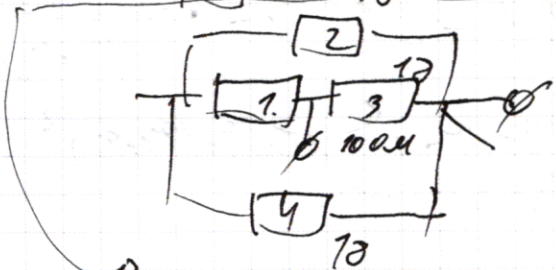 2
1д
1. 3
10 Ом
4
1д